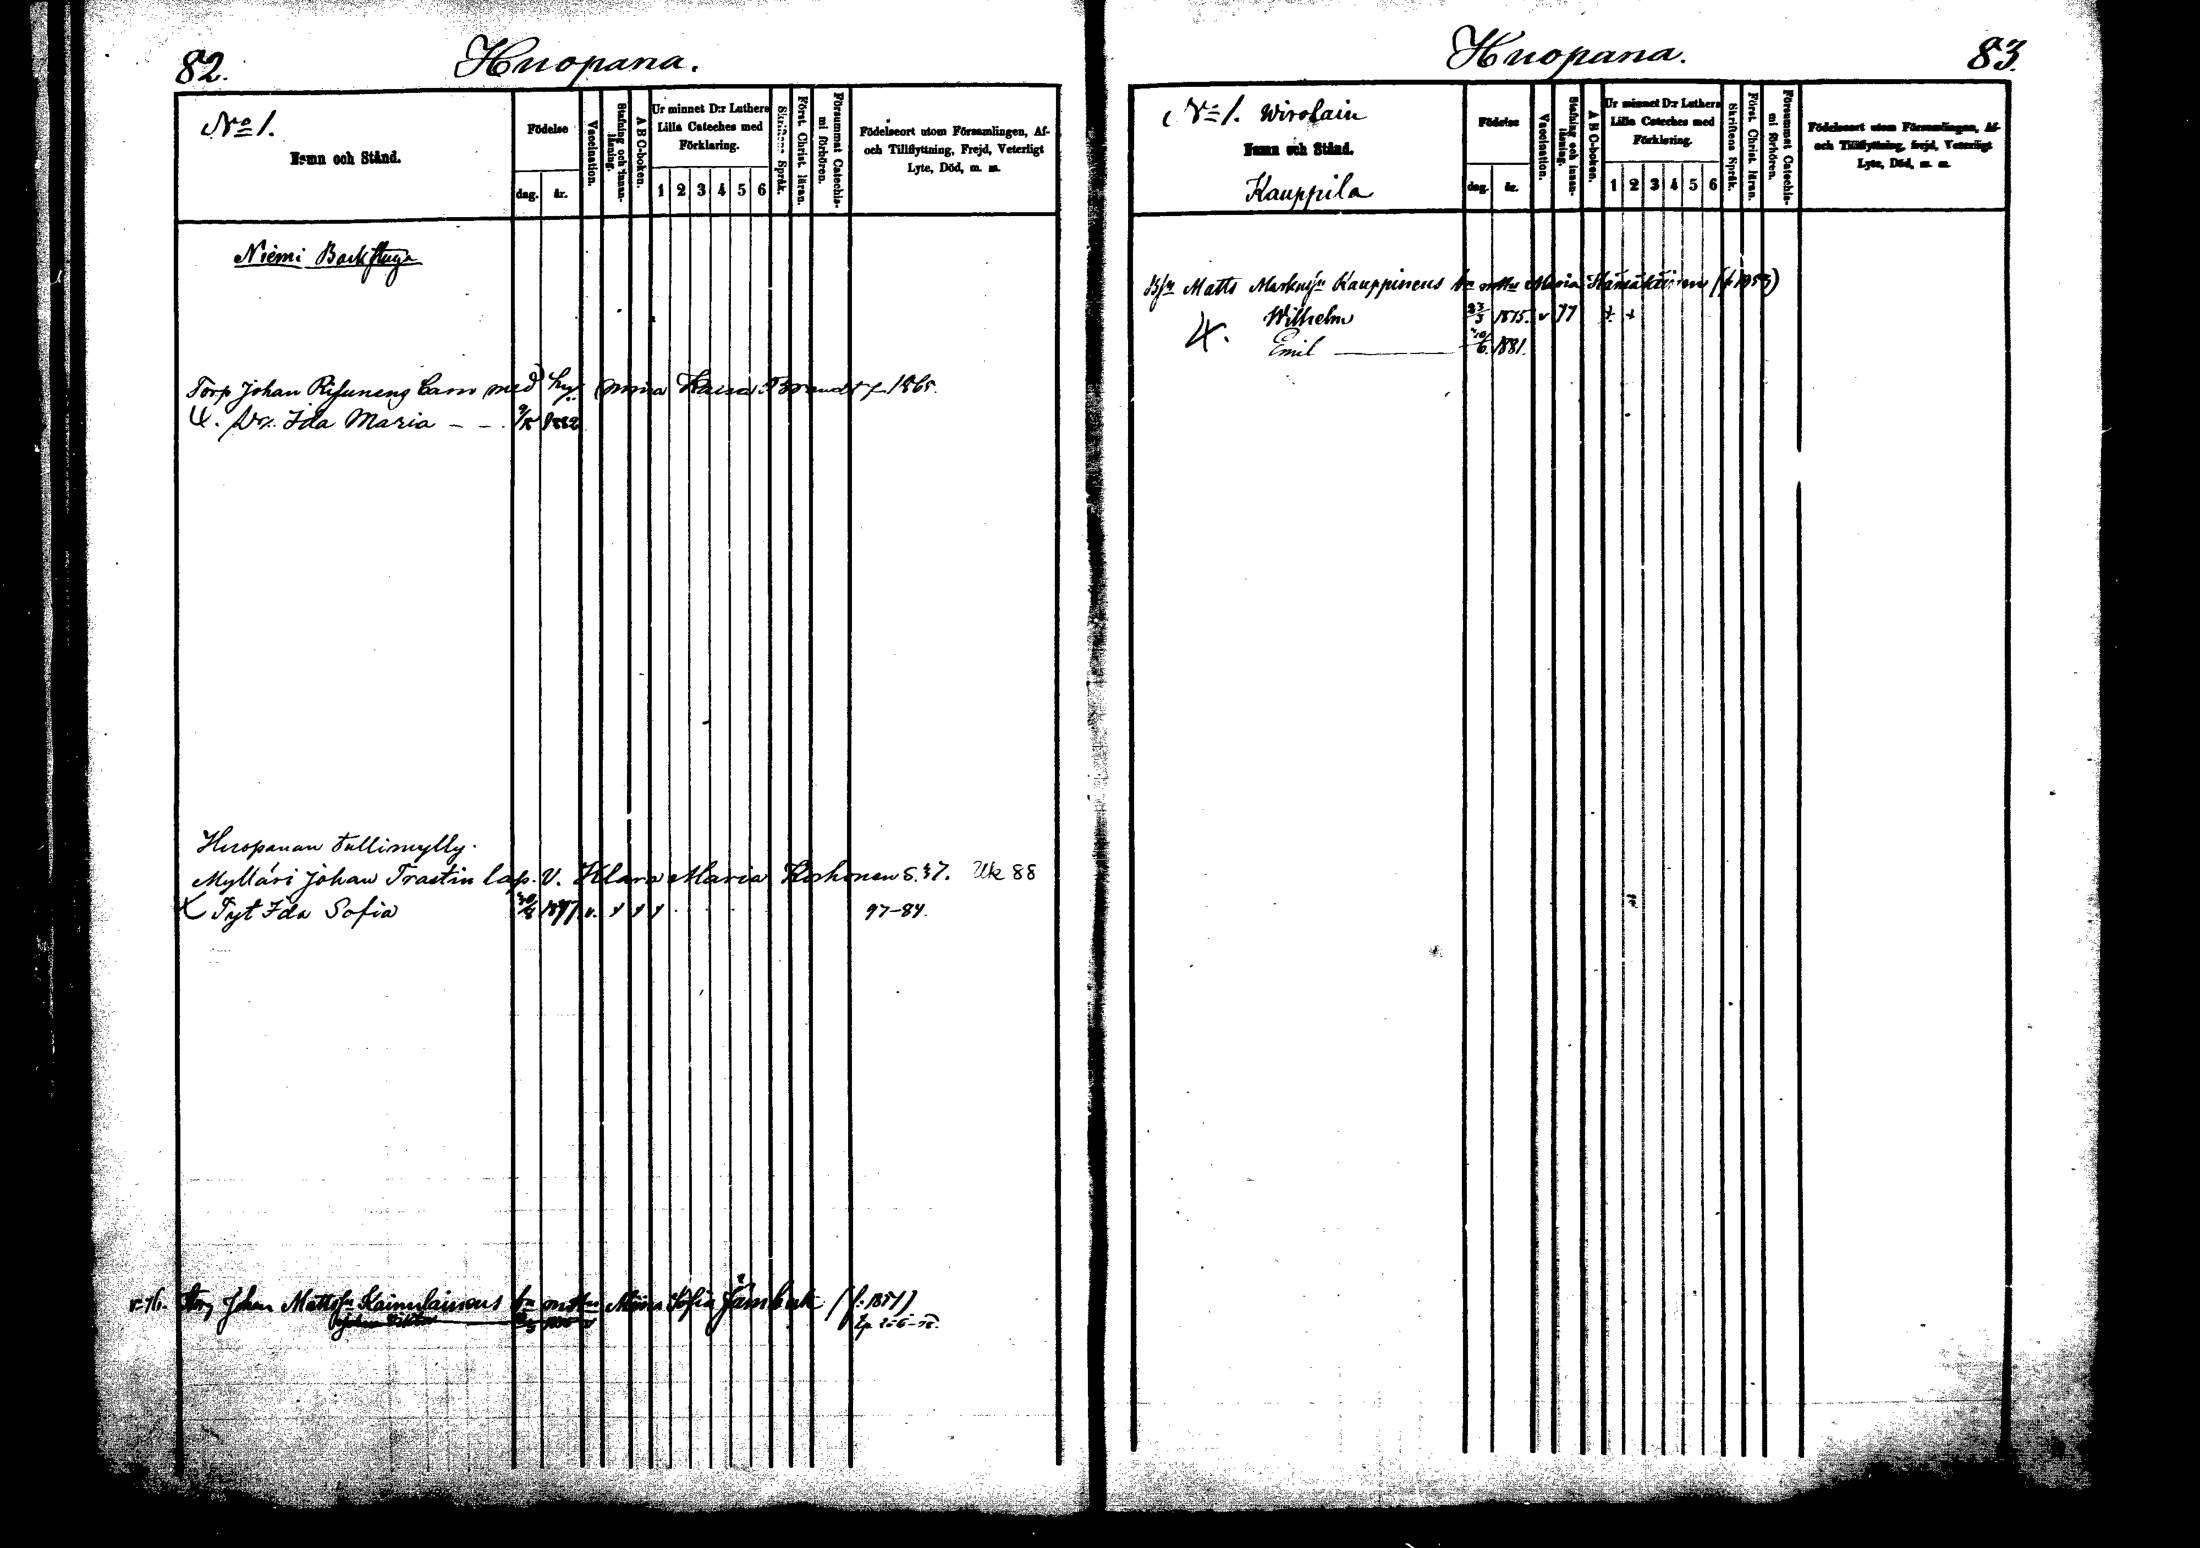 82. Huopana.
No 1.
Namn och Stånd.
Födelse
dag. år.
Vaccination.
Stafning och innan-läsning.
A B C-boken.
Ur minnet D:r Luthers
Lilla Cateches med
Förklaring.
1 2 3 4 5 6
Skriftens Språk.
Först. Christ. läran.
Försummat Catechis-mi förhören.
Födelseort utom Församlingen, Af-
och Tillflyttning, Frejd, Veterligt
Lyte, Död, m. m.
Niemi Backstuga
Torp Johan Risunens barn med hu Kaisa f. 1865.
Dr. Ida Maria 1882
Huopanan tullimylly.
Mylläri Johan Trastin lap. V. Klara Maria Korhonen S. 37. Uk 88
Tyt Ida Sofia 1877 v. 97-84.
Johan Kainulainens Sofia (f. 1854)
Huopana. 83.
No 1. Wirolain
Namn och Stånd.
Kauppila
Födelse
dag. år.
Vaccination.
Stafning och innan-läsning.
A B C-boken.
Ur minnet D:r Luthers
Lilla Cateches med
Förklaring.
1 2 3 4 5 6
Skriftens Språk.
Först. Christ. läran.
Försummat Catechis-mi förhören.
Födelseort utom Församlingen, Af-
och Tillflyttning, frejd, Veterligt
Lyte, Död, m. m.
Matts Kauppinens Maria
Wilhelm 1875. v
Emil 1881.